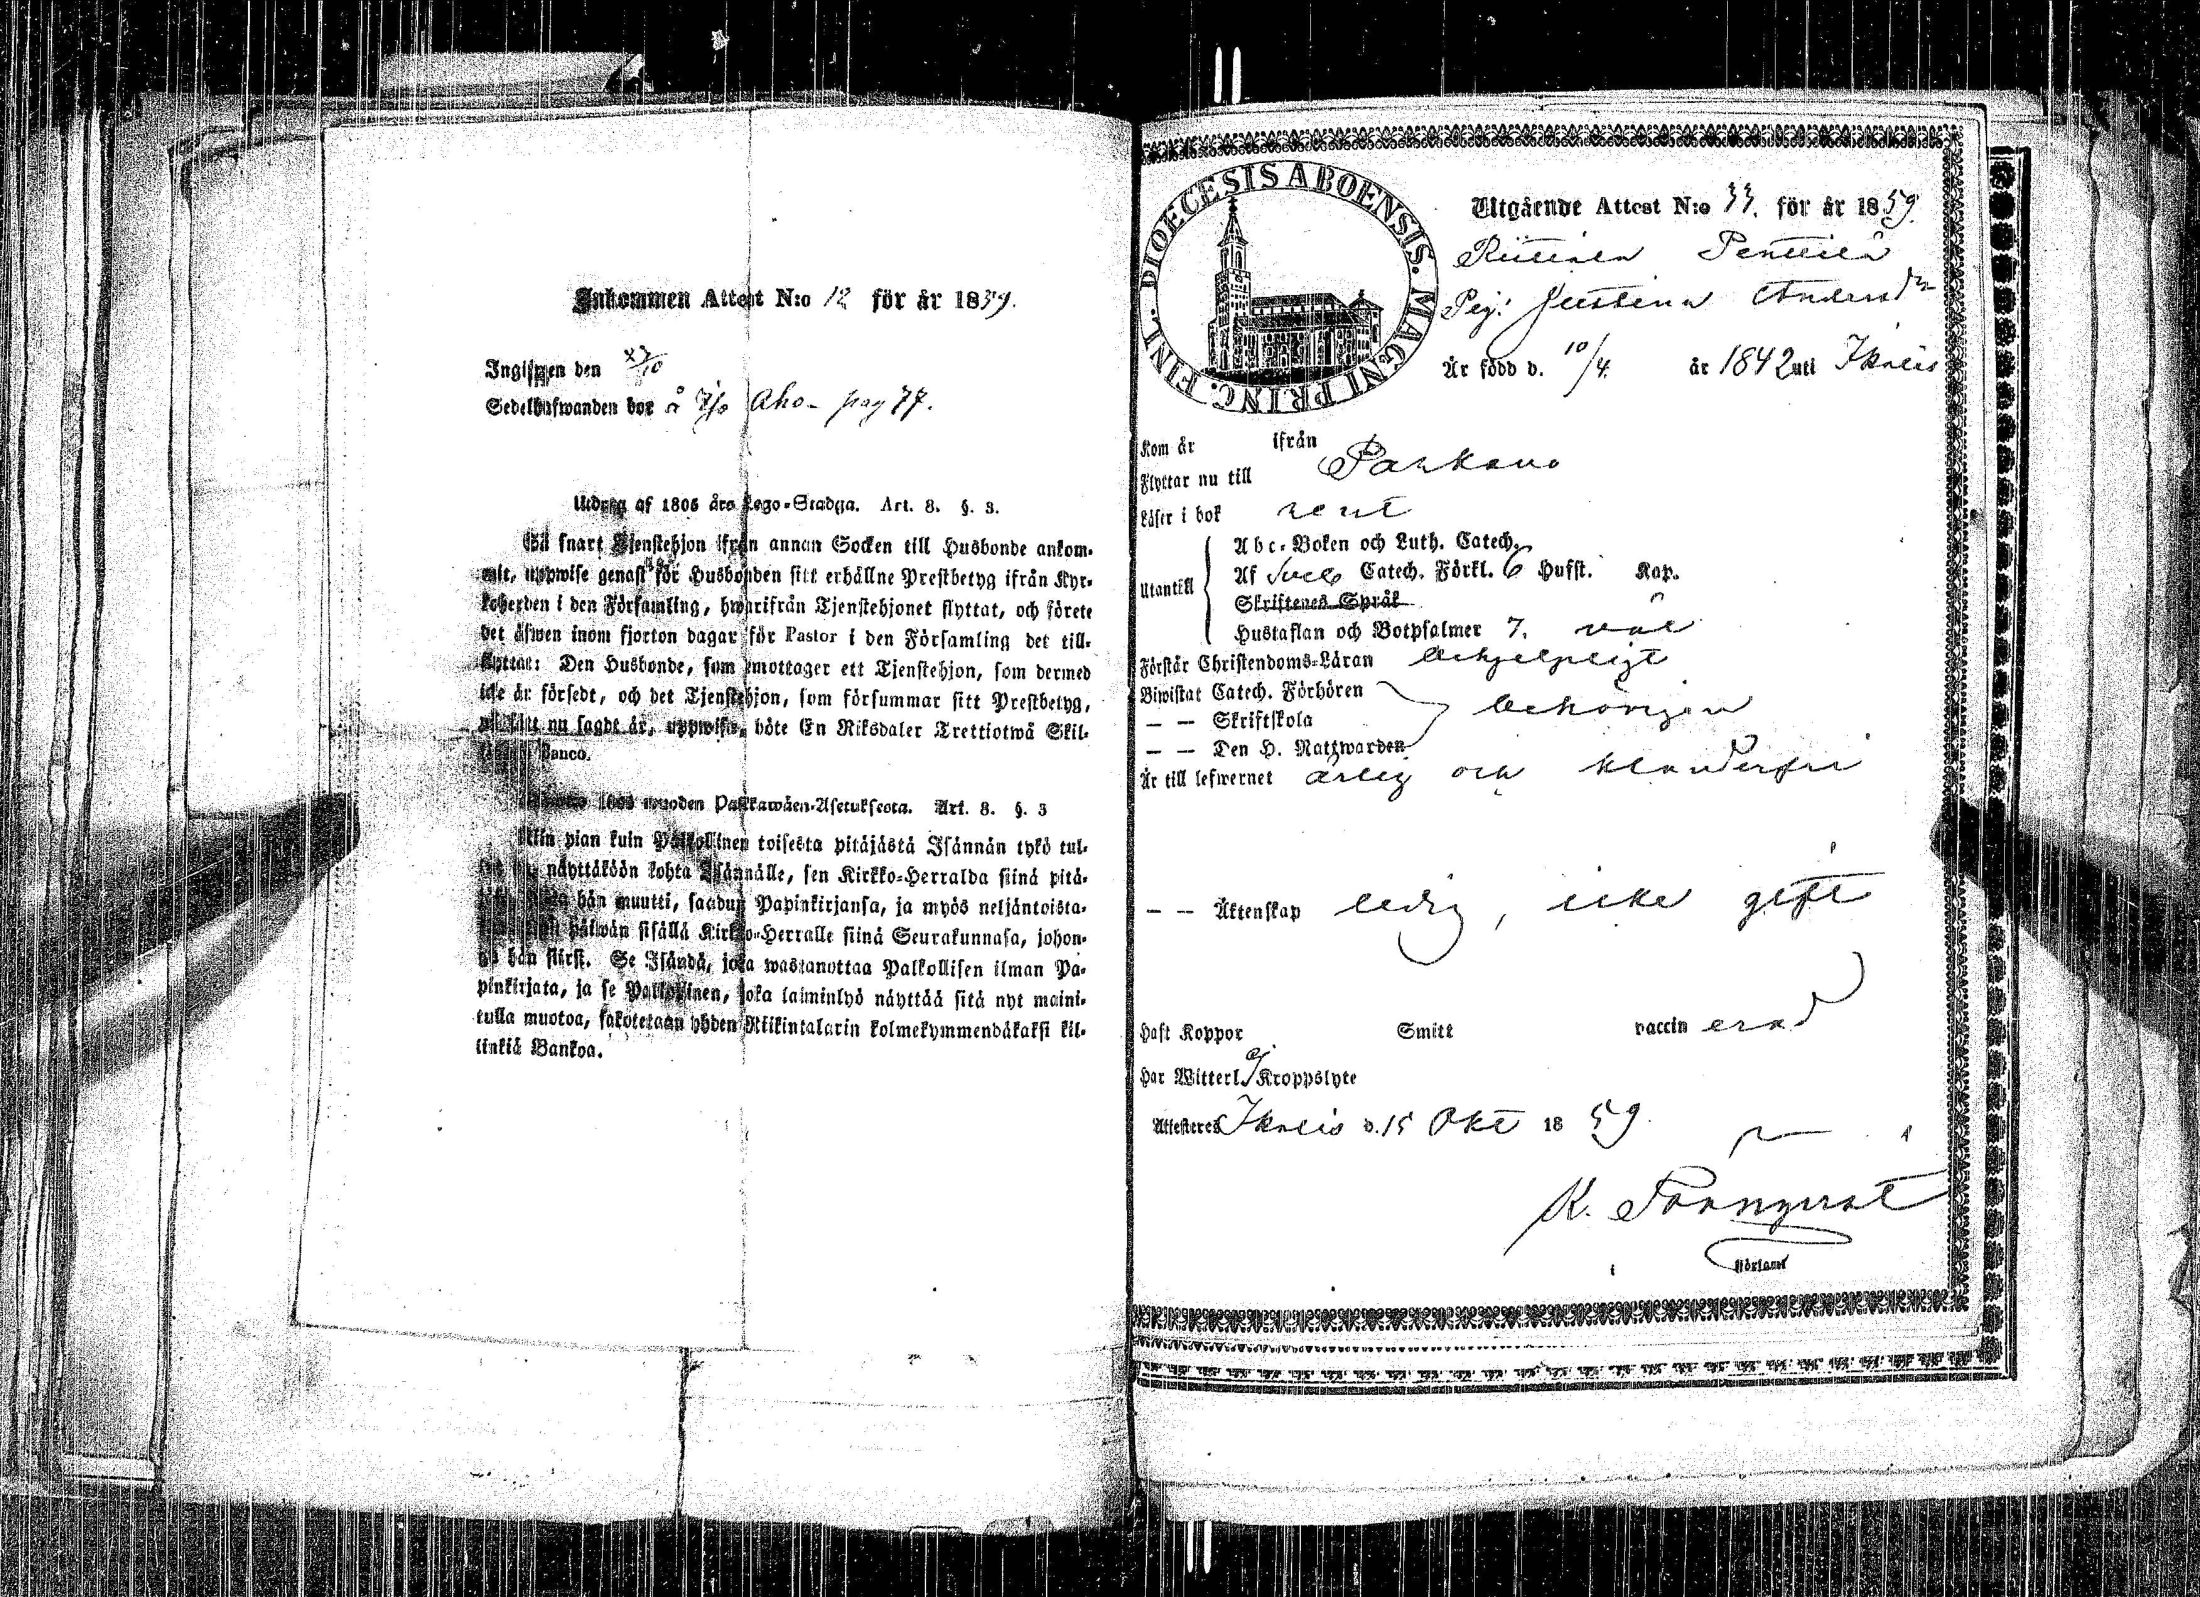 Inkommen Attest N:o 12 för år 1859.
Ingifwen den 27/10
Sedelhafwanden bor å Aho pag 77.
Utdrag af 1805 års Lego-Stadga. Art. 8. §. 3.
Så snart Tjenstehjon ifrån annan Socken till Husbonde ankom-
mit, uppwise genast för Husbonden sitt erhållne Prestbetyg ifrån Kyr-
koherden i den Församling, hwarifrån Tjenstehjonet flyttat, och förete
det äfwen inom fjorton dagar för Pastor i den Församling det till-
flyttat: Den Husbonde, som emottager ett Tjenstehjon, som dermed
icke är försedt, och det Tjenstehjon, som försummar sitt Prestbetyg,
nu sagdt är, uppwisa, böte En Riksdaler Trettiotwå Skil-
Banco.
1805 wuoden Palkkawäen-Asetuksesta. Art. 8. §. 3
Niin pian kuin Palkollinen toisesta pitäjästä Isännän tykö tul-
näyttäköön kohta Isännälle, sen Kirkko-Herralda siinä pitä-
hän muutti, saadun Papinkirjansa, ja myös neljäntoista-
päiwän sisällä Kirkko-Herralle siinä Seurakunnasa, johon-
hän siirsi. Se Isändä, joka wastanottaa Palkollisen ilman Pa-
pinkirjata, ja se Palkollinen, joka laiminlyö näyttää sitä nyt maini-
tulla muotoa, sakotetaan yhden Riikintalarin kolmekymmendäkaksi kil-
linkiä Bankoa.
DIOECESIS ABOENSIS. MAGNI PRINC. FINL.
Utgående Attest N:o 33. för år 1859.
Riitiala Penttilä
Pig. Justina Andersdr
Är född d. 10/4. år 1842 uti Ikalis
Kom år ifrån
Flyttar nu till Parkano
Läser i bok rent
Utantill
Abc-Boken och Luth. Catech.
Af Sveb Catech. Förkl. 6 Hufst. Kap.
Skriftenes Språk
Hustaflan och Botpsalmer 7. väl
Förstår Christendoms-Läran behjelpligt
Biwistat Catech. Förhören
— — Skriftskola behörigen
— — Den H. Nattwarden
Är till lefwernet ärlig och klanderfri
— — Äktenskap ledig, icke gift
Haft Koppor Smitt vaccin erad
Har Witterl. ej Kroppslyte
Attesteres Ikalis d. 15 Okt 1859.
K. Törnqvist
i Församl